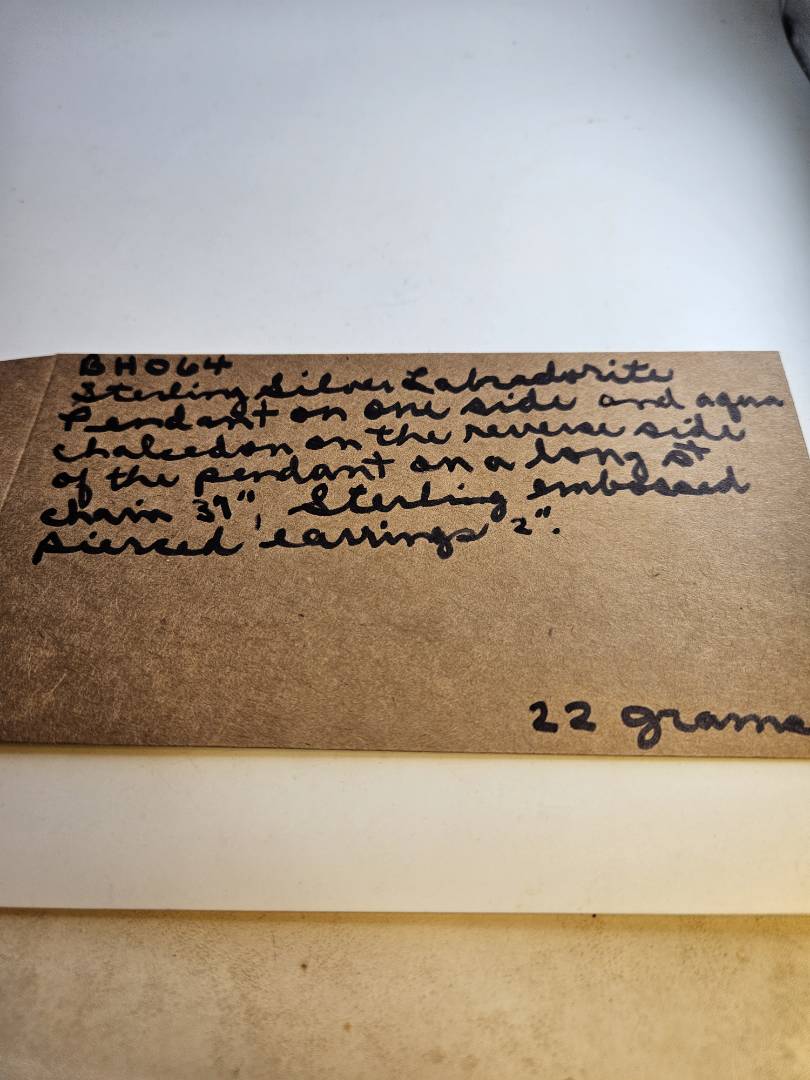 BH064
Sterling Silver Labradorite
Pendant on one side and aqua
chalcedon on the reverse side
of the pendant on a long St
chain 39", Sterling embossed
pierced earrings 2".
22 grams